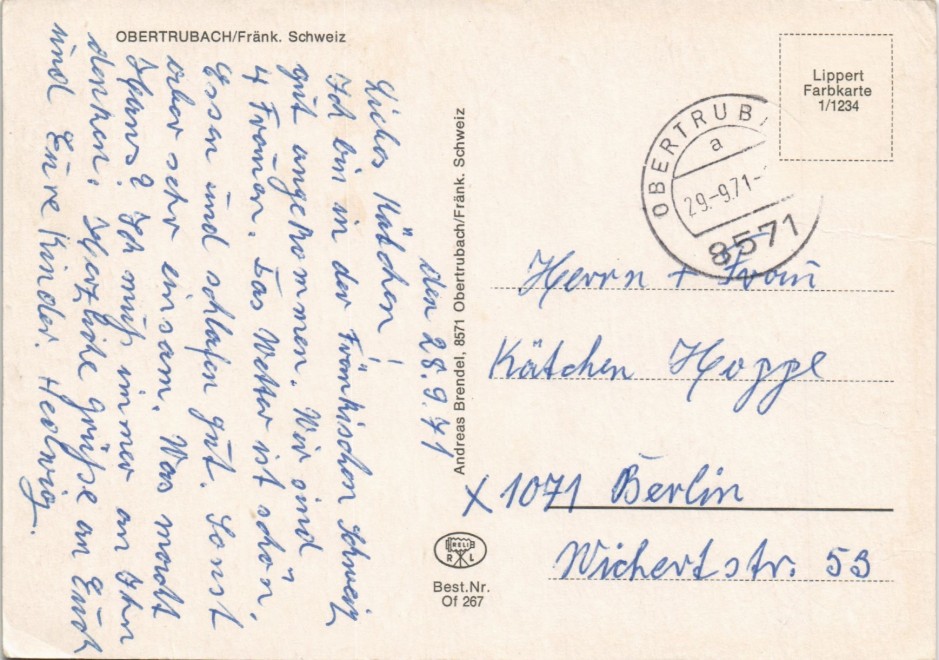 OBERTRUBACH/Fränk. Schweiz
den 28.9.71
Liebes Kätchen!
Ich bin in der Fränkischen Schweiz
gut angekommen. Wir sind
4 Frauen. Das Wetter ist schön.
Essen und schlafen gut. Sonst
aber sehr einsam. Was macht
Hans? Ich muß immer an Ihn
denken. Herzliche Grüße an Euch
und Eure Kinder. Hedwig.
Andreas Brendel, 8571 Obertrubach/Fränk. Schweiz
BELI
R L
Best.Nr.
Of 267
Lippert
Farbkarte
1/1234
OBERTRUBA
a
29.-9.71-
8571
Herrn + Frau
Kätchen Hoppe
X 1071 Berlin
Wichertstr. 53